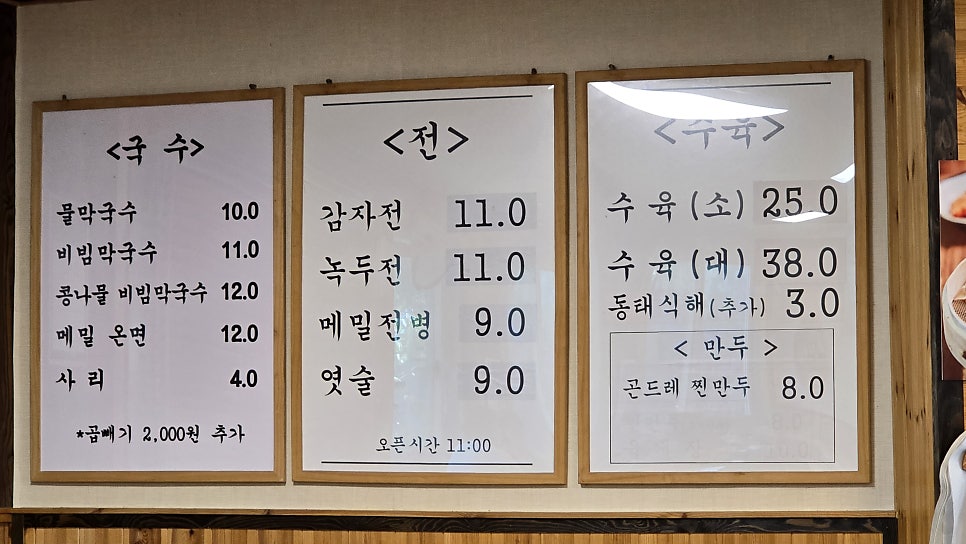 <국 수>
물막국수 10.0
비빔막국수 11.0
콩나물 비빔막국수 12.0
메밀 온면 12.0
사 리 4.0
*곱빼기 2,000원 추가
<전>
감자전 11.0
녹두전 11.0
메밀전병 9.0
엿술 9.0
오픈시간 11:00
<수육>
수 육 (소) 25.0
수 육 (대) 38.0
동태식해(추가) 3.0
< 만두 >
곤드레 찐만두 8.0